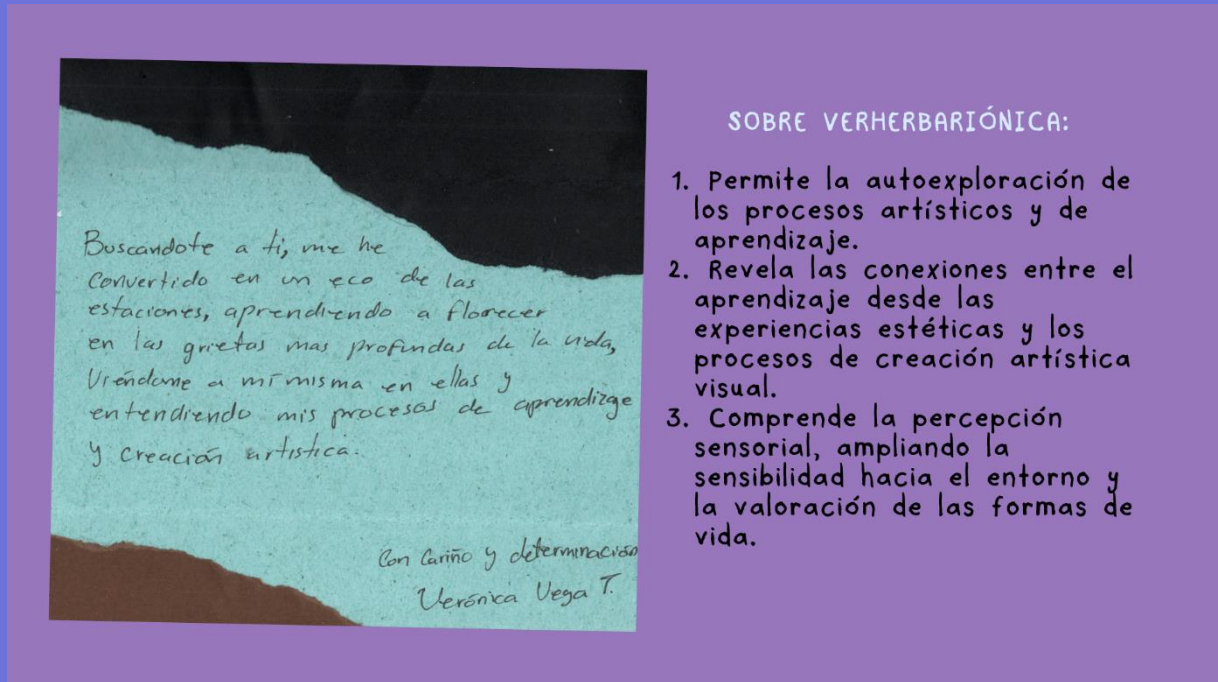 Buscandote a ti, me he
convertido en un eco de las
estaciones, aprendiendo a florecer
en las grietas mas profundas de la vida,
Viéndome a mí misma en ellas y
entendiendo mis procesos de aprendizaje
y creación artistica.
Con Cariño y determinación
Verónica Vega T.
SOBRE VERHERBARIÓNICA:
1. Permite la autoexploración de
los procesos artísticos y de
aprendizaje.
2. Revela las conexiones entre el
aprendizaje desde las
experiencias estéticas y los
procesos de creación artística
visual.
3. Comprende la percepción
sensorial, ampliando la
sensibilidad hacia el entorno y
la valoración de las formas de
vida.